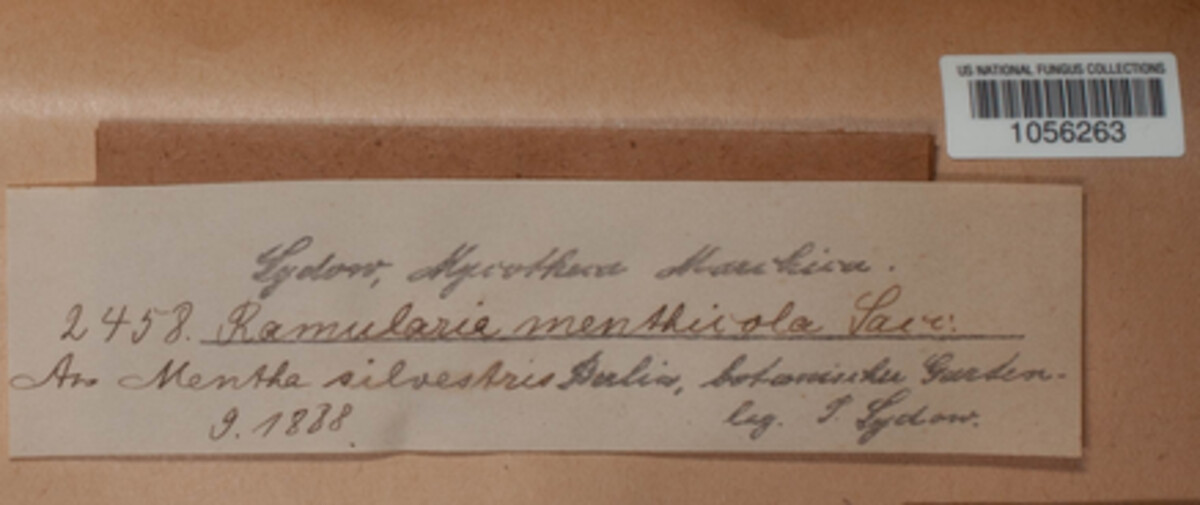 US NATIONAL FUNGUS COLLECTIONS
1056263
Sydow, Mycotheca Marchica.
2458. Ramularia menthicola Sacc.
An Mentha silvestris Berlin, botanischer Garten.
9. 1888.
leg. P. Sydow.